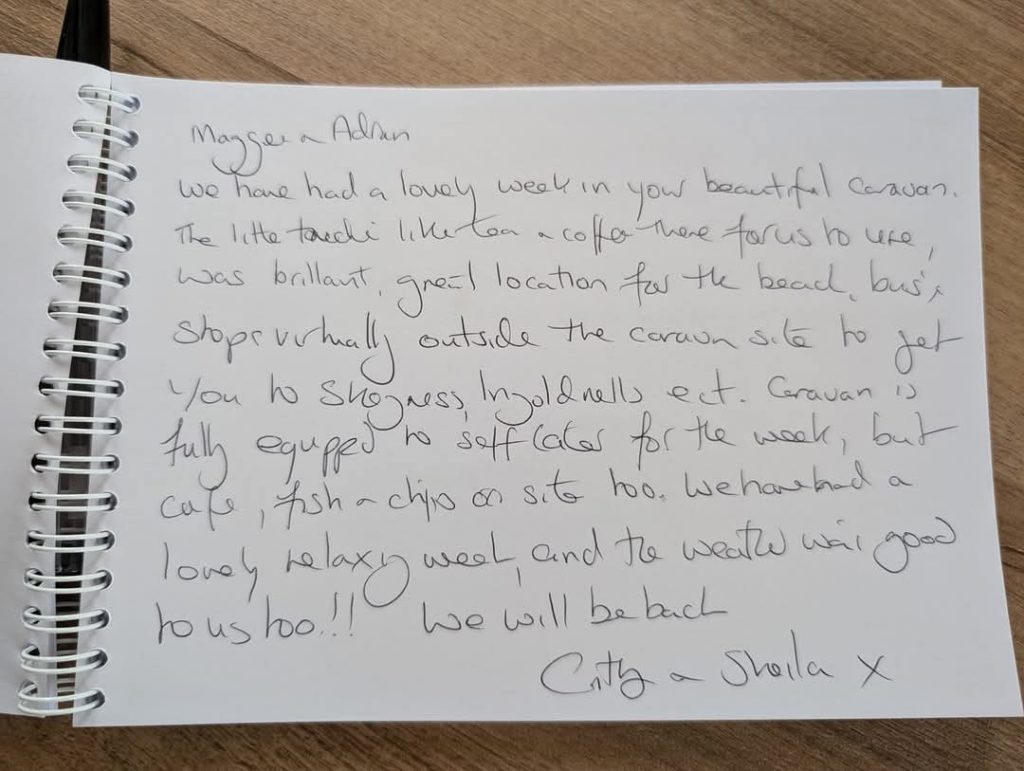 Maggee n Adrian
We have had a lovely week in your beautiful caravan.
The little touchi like tea n coffee there for us to use,
was brillant, great location for the beach, bus's
stops virtually outside the caravan site to get
you to Skegness, Ingoldnells ect. Caravan is
fully equpped to self cater for the week, but
cafe, fish n chips on site too. We have had a
lovely relaxy week, and the weather was good
to us too!! We will be back
n Sheila X